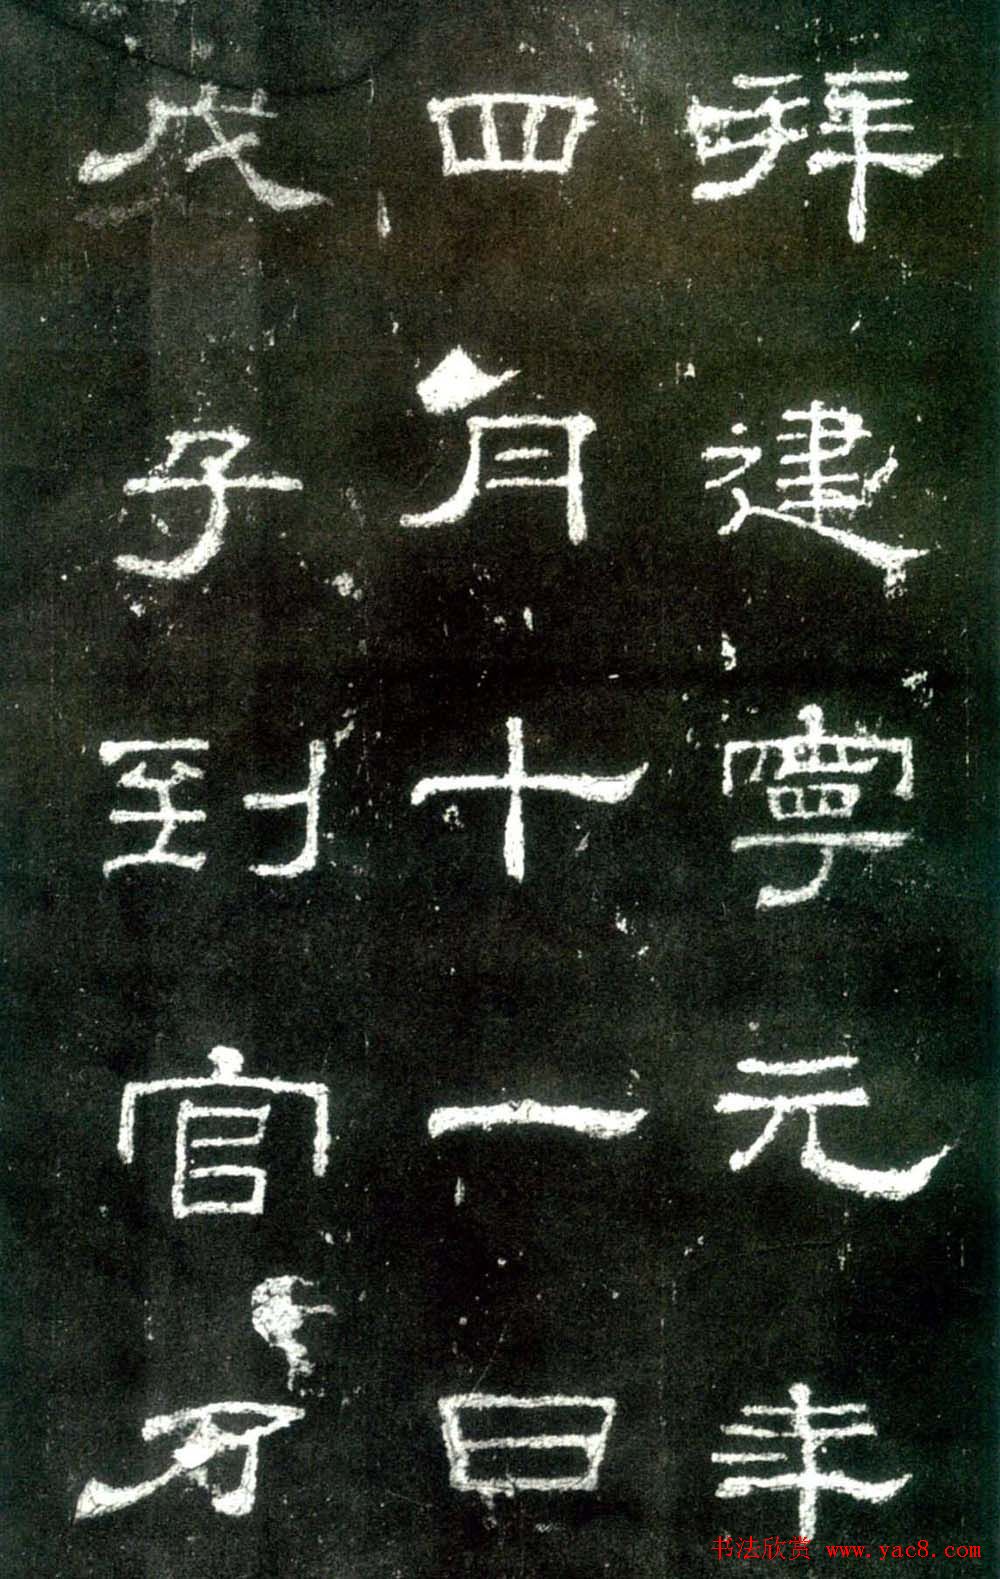 拜建寧元年
四月十一日
戊子到官乃
书法欣赏 www.yac8.com